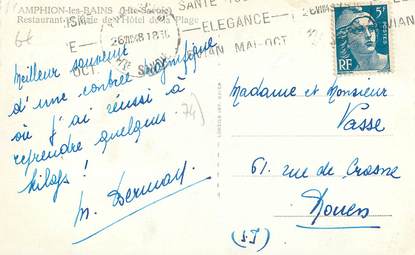 AMPHION-les-BAINS (Hte-Savoie)
Restaurant de l'Hôtel de la Plage
SANTÉ
ELEGANCE
MAI-OCT
OCT
5F
RF
Meilleur souvenir
d'une contrée magnifique
où j'ai réussi à
reprendre quelques
kilogs !
74)
Madame et Monsieur
Vasse
61. rue de Crosne
Rouen
(S.I)